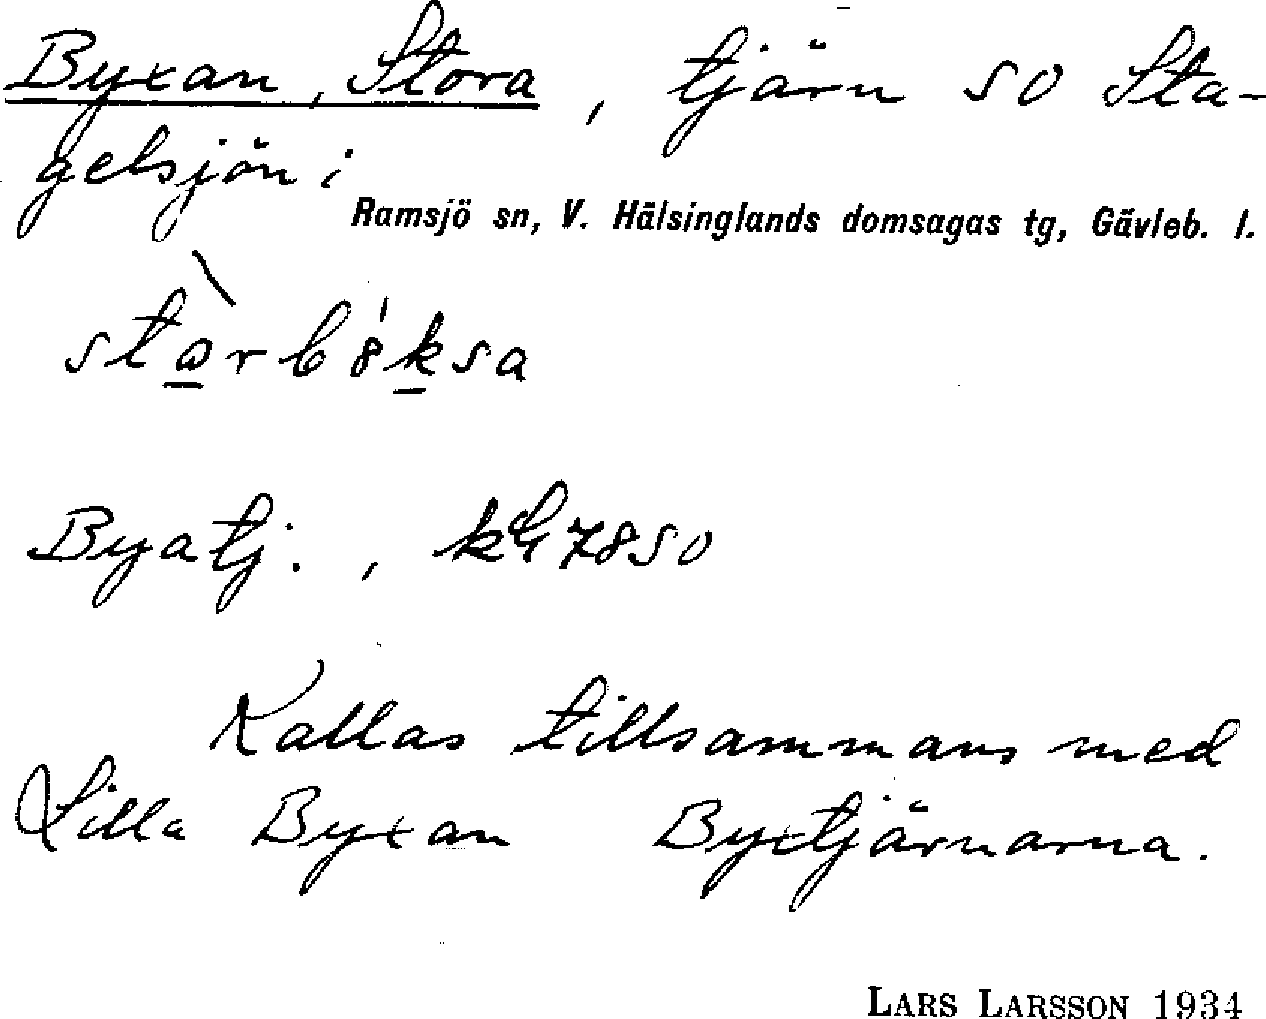 Byxan, Stora, tjärn SO Sta-
gelsjön i
Ramsjö sn, V. Hälsinglands domsagas tg, Gävleb. l.
Byatj., 7850
Kallas tillsammans med
Lilla Byxan Byxtjärnarna.
LARS LARSSON 1934